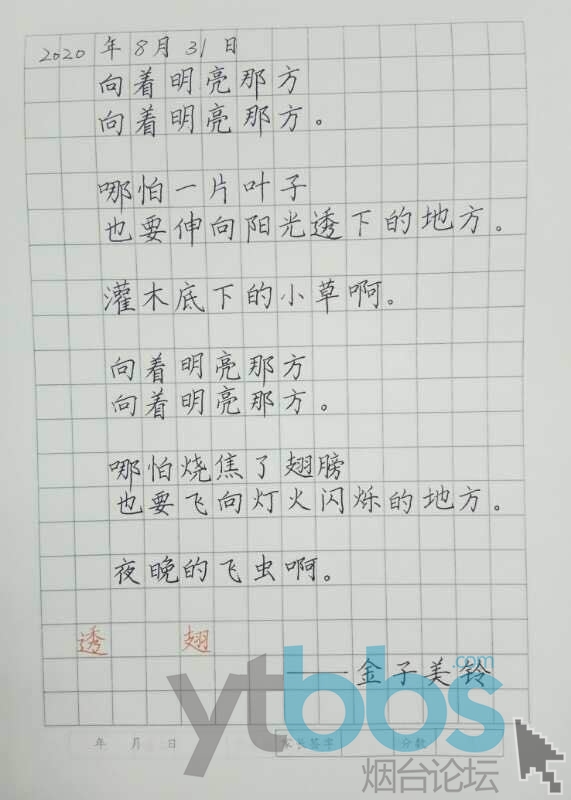 2020 年 8 月 31 日
向着明亮那方
向着明亮那方。
哪怕一片叶子
也要伸向阳光透下的地方。
灌木底下的小草啊。
向着明亮那方
向着明亮那方。
哪怕烧焦了翅膀
也要飞向灯火闪烁的地方。
夜晚的飞虫啊。
透 翅
——金子美铃
年 月 日 家长签字 分数
ytbbs.com
烟台论坛